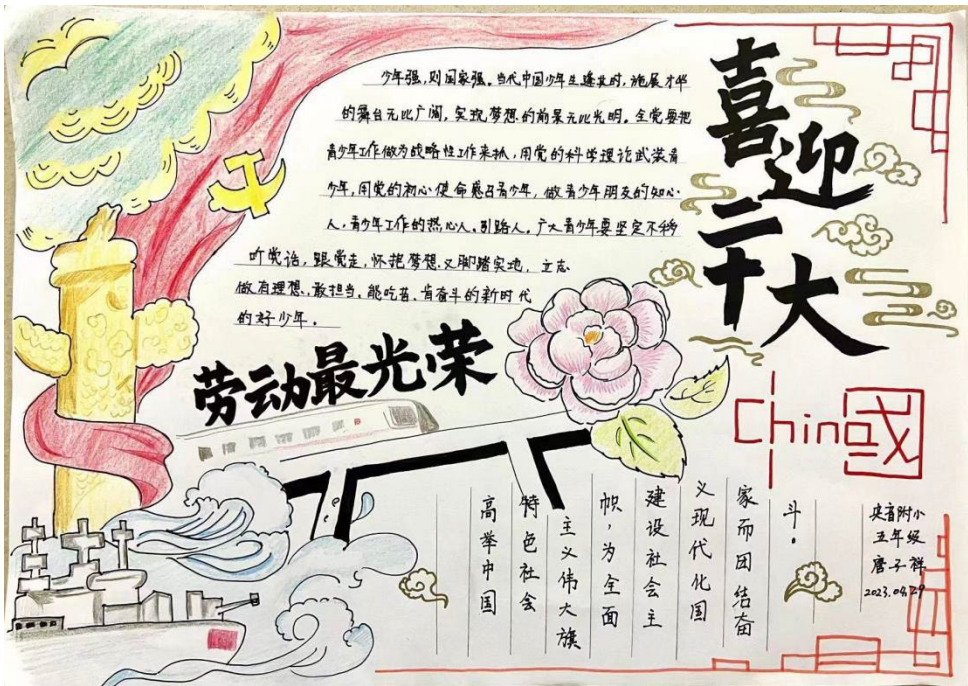 喜迎二十大
少年强，则国家强。当代中国少年生逢其时，施展才华
的舞台无比广阔，实现梦想的前景无比光明。全党要把
青少年工作做为战略性工作来抓，用党的科学理论武装青
少年，用党的初心使命感召青少年，做青少年朋友的知心
人，青少年工作的热心人、引路人。广大青少年要坚定不移
听党话，跟党走，怀抱梦想又脚踏实地，立志
做有理想、敢担当、能吃苦、肯奋斗的新时代
的好少年。
劳动最光荣
China國
高举中国
特色社会
主义伟大旗
帜，为全面
建设社会主
义现代化国
家而团结奋
斗。
央音附小
五年级
唐子祥
2023.04.29